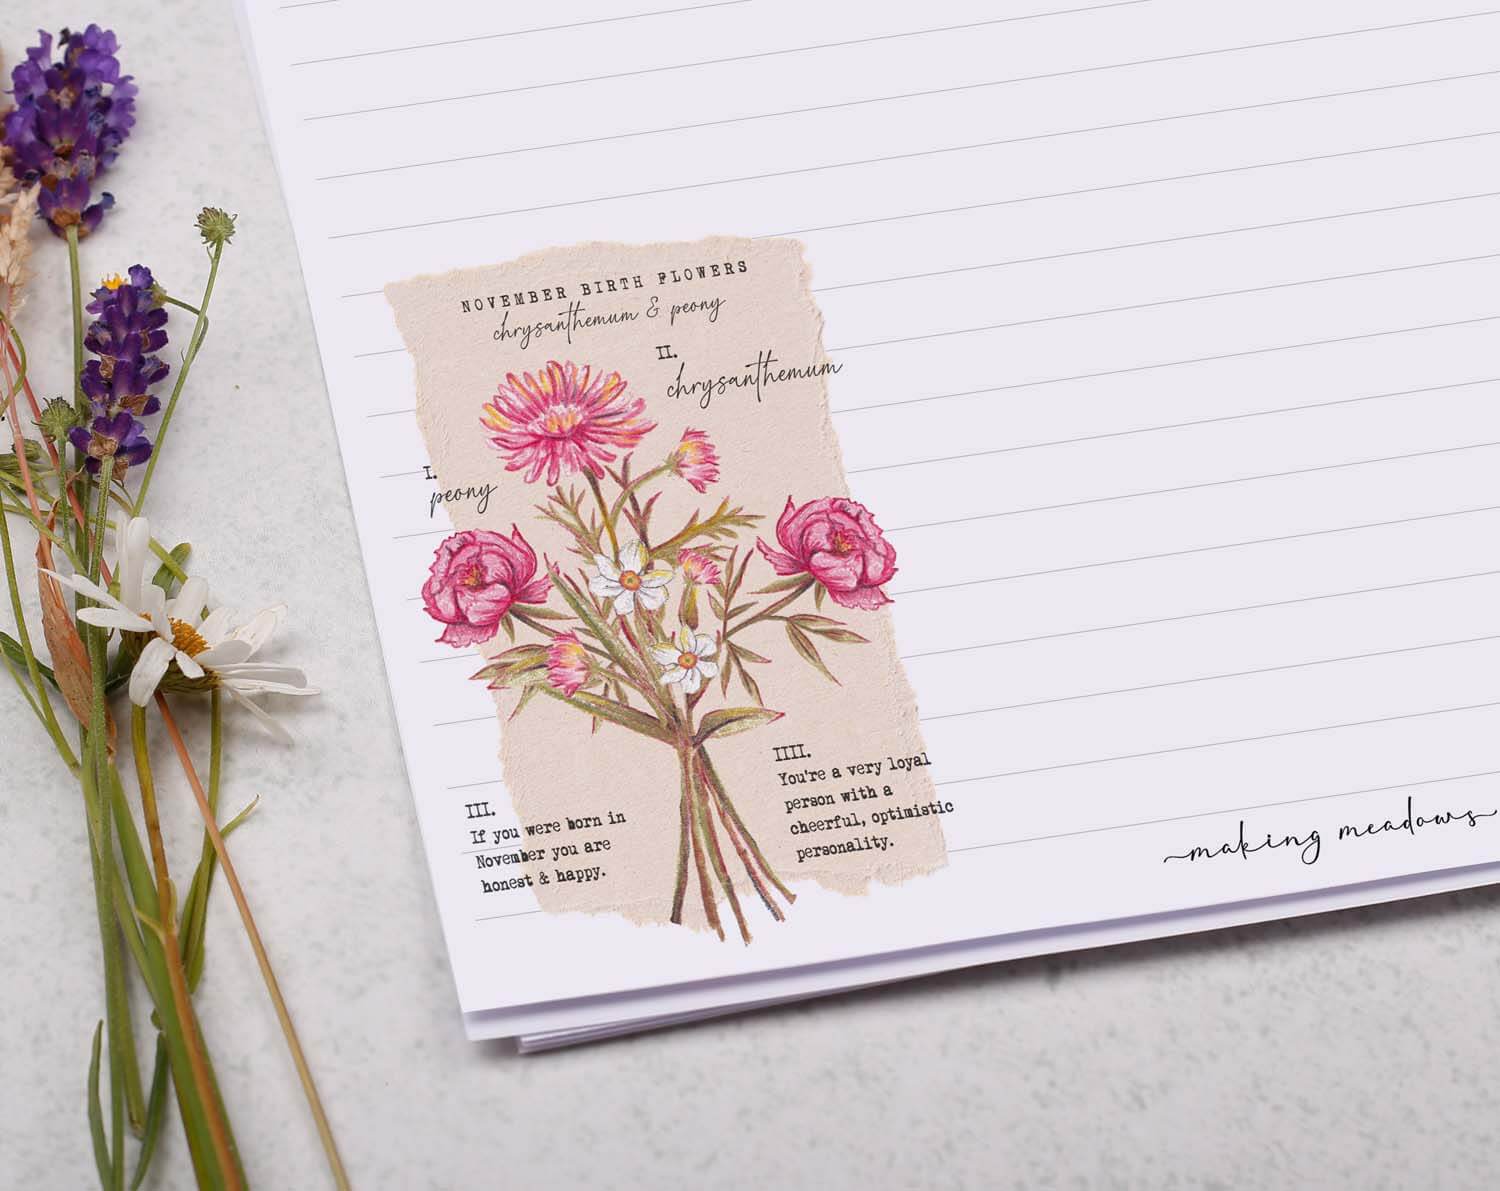 NOVEMBER BIRTH FLOWERS
chrysanthemum & peony
II.
chrysanthemum
I.
peony
IIII.
You're a very loyal
person with a
cheerful, optimistic
personality.
III.
If you were born in
November you are
honest & happy.
making meadows